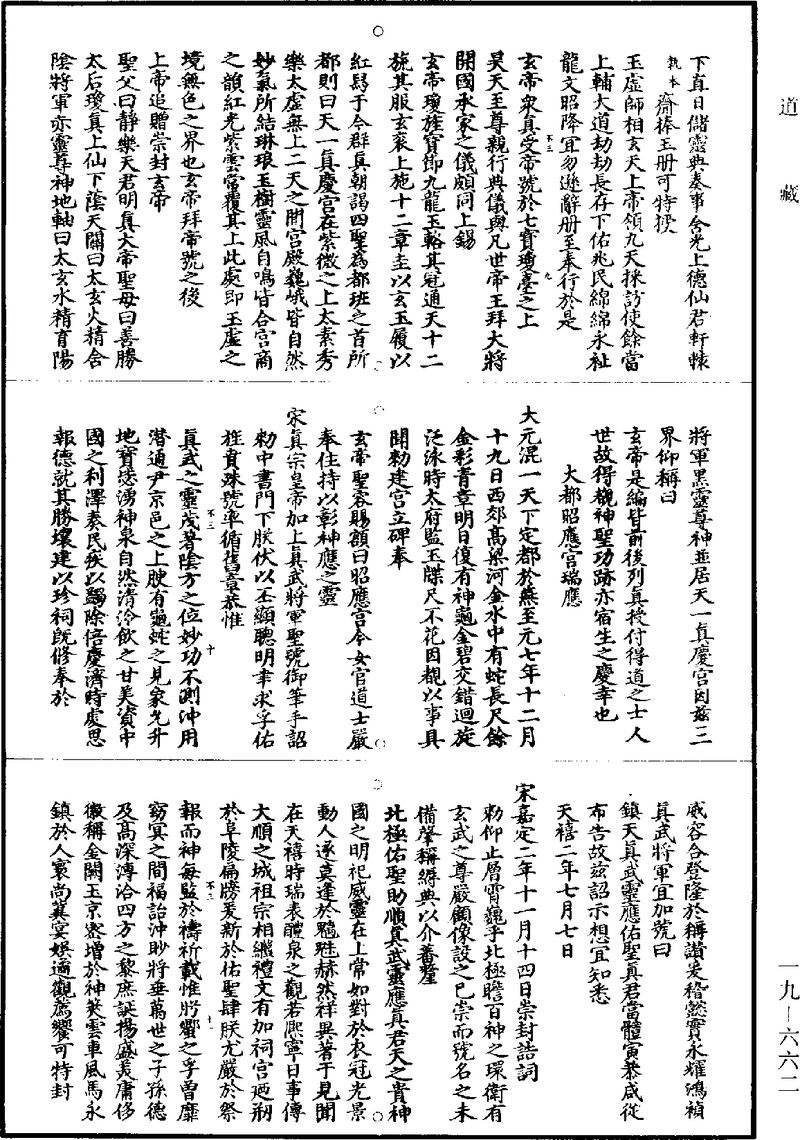 道藏
下直日儲靈典奏事舍光上德仙君軒轅
執本 齋捧玉册可特授
玉虛師相玄天上帝領九天採訪使餘當
上輔大道劫劫長存下佑兆民綿綿永祉
龍文昭降宜勿遜辭册至奉行於是
玄帝衆真受帝號於七寶瓊臺之上
昊天至尊親行典儀與凡世帝王拜大將
開國承家之儀頗同上錫
玄帝瓊旌寶節九龍玉輅其冠通天十二
旒其服玄衮上施十二章圭以玄玉履以
紅舄于今群真朝謁四聖爲都班之首所
都則曰天一真慶宮在紫微之上太素秀
樂太虛無上二天之間宮殿巍峨皆自然
妙氣所結琳琅玉樹靈風自鳴皆合宮商
之韻紅光紫雲常覆其上此處即玉虛之
境無色之界也玄帝拜帝號之後
上帝追贈崇封玄帝
聖父曰靜樂天君明真大帝聖母曰善勝
太后瓊真上仙下陰天關曰太玄火精含
陰將軍赤靈尊神地軸曰太玄水精育陽
將軍黑靈尊神並居天一真慶宮因茲三
界仰稱曰
玄帝是編皆前後列真授付得道之士人
世故得覩神聖功跡亦宿生之慶幸也
大都昭應宮瑞應
大元混一天下定都於燕至元七年十二月
十九日西郊高梁河金水中有蛇長尺餘
金彩青章明日復有神龜金碧交錯迴旋
泛泳時太府監玉牒尺不花因覩以事具
聞勑建宮立碑奉
玄帝聖容賜額曰昭應宮令女官道士嚴
奉住持以彰神應之靈
宋真宗皇帝加上真武將軍聖號御筆手詔
勑中書門下朕伏以丕顯聰明聿求孚佑
旌賁殊號率循舊章恭惟
真武之靈茂著陰方之位妙功不測沖用
潛通尹京邑之上腴有龜蛇之見象允升
地寶遂湧神泉自然清泠飲之甘美資中
國之利澤蓁民疾以蠲除倍慶濟時處思
報德就其勝壤建以珍祠既修奉於
威容合登隆於稱讚爰稽懿實永耀鴻禎
真武將軍宜加號曰
鎮天真武靈應佑聖真君當體寅恭咸從
布告故茲詔示想宜知悉
天禧二年七月七日
宋嘉定二年十一月十四日崇封誥詞
勑仰止層霄巍乎北極瞻百神之環衛有
玄武之尊嚴顧像設之已崇而號名之未
備肇稱縟典以介蕃釐
北極佑聖助順真武靈應真君天之貴神
國之明祀威靈在上常如對於衣冠光景
動人遂莫逢於魑魅赫然祥異著于見聞
在天禧時瑞表醴泉之觀若熙寧日事傳
大順之城祖宗相繼禮文有加祠宮迺剏
於阜陵扁牓爰新於佑聖肆朕尤嚴於祭
報而神每監於禱祈載惟肹蠁之孚曾靡
窈冥之間福詒沖眇將垂萬世之子孫德
及高深溥洽四方之黎庶誕揚盛美庸侈
徽稱金闕玉京寔增於神筴雲車風馬永
鎮於人寰尚冀宴娛遹觀薦饗可特封
一九—六六二